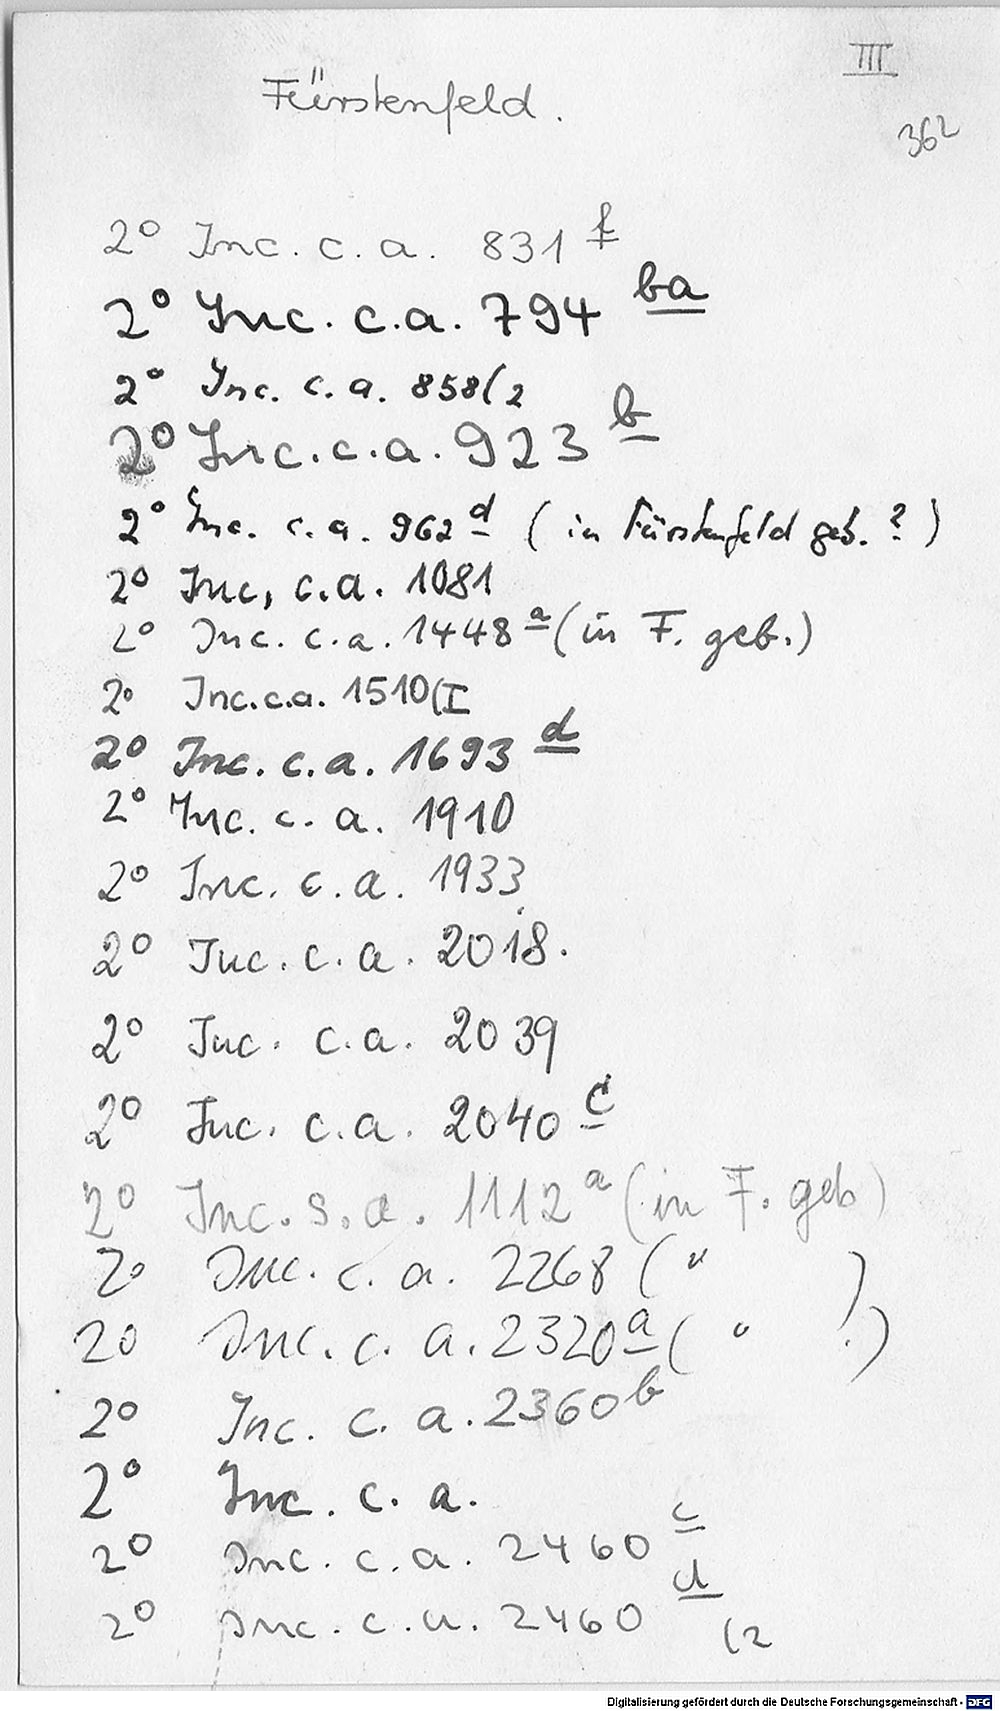 III
Fürstenfeld.
362
2° Inc. c. a. 831 f
2° Inc. c.a. 794 ba
2° Inc. c. a. 858(2
2° Inc. c. a. 923 b
2° Inc. c. a. 962 d (in Fürstenfeld geb. ?)
2° Inc, c.a. 1081
2° Inc. c. a. 1448 a (in F. geb.)
2° Inc.c.a. 1510(I
2° Inc. c. a. 1693 d
2° Inc. c. a. 1910
2° Inc. c. a. 1933
2° Inc. c. a. 2018.
2° Inc. c.a. 2039
2° Inc. c.a. 2040 c
2° Inc. s. a. 1112 a (in F. geb)
2° Inc. c. a. 2268 ( " )
2° Inc. c. a. 2320 a ( " .)
2° Inc. c. a. 2360 b
2° Inc. c. a.
2° Inc. c. a. 2460 c
2° Inc. c. a. 2460 d (2
Digitalisierung gefördert durch die Deutsche Forschungsgemeinschaft - DFG